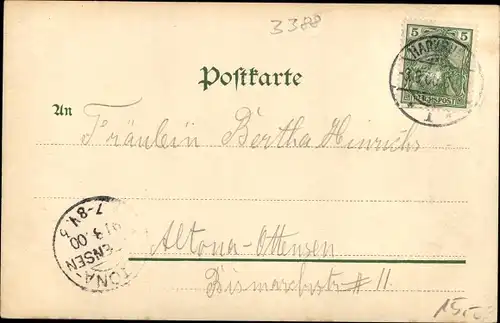 3388
5 5
HARBURG
REICHSPOST
1
Postkarte
An
Fräulein Bertha Hinrichs
Altona-Ottensen
Bismarckstr # 11
ALTONA-
OTTENSEN
3.00
7-8 N.
15,-